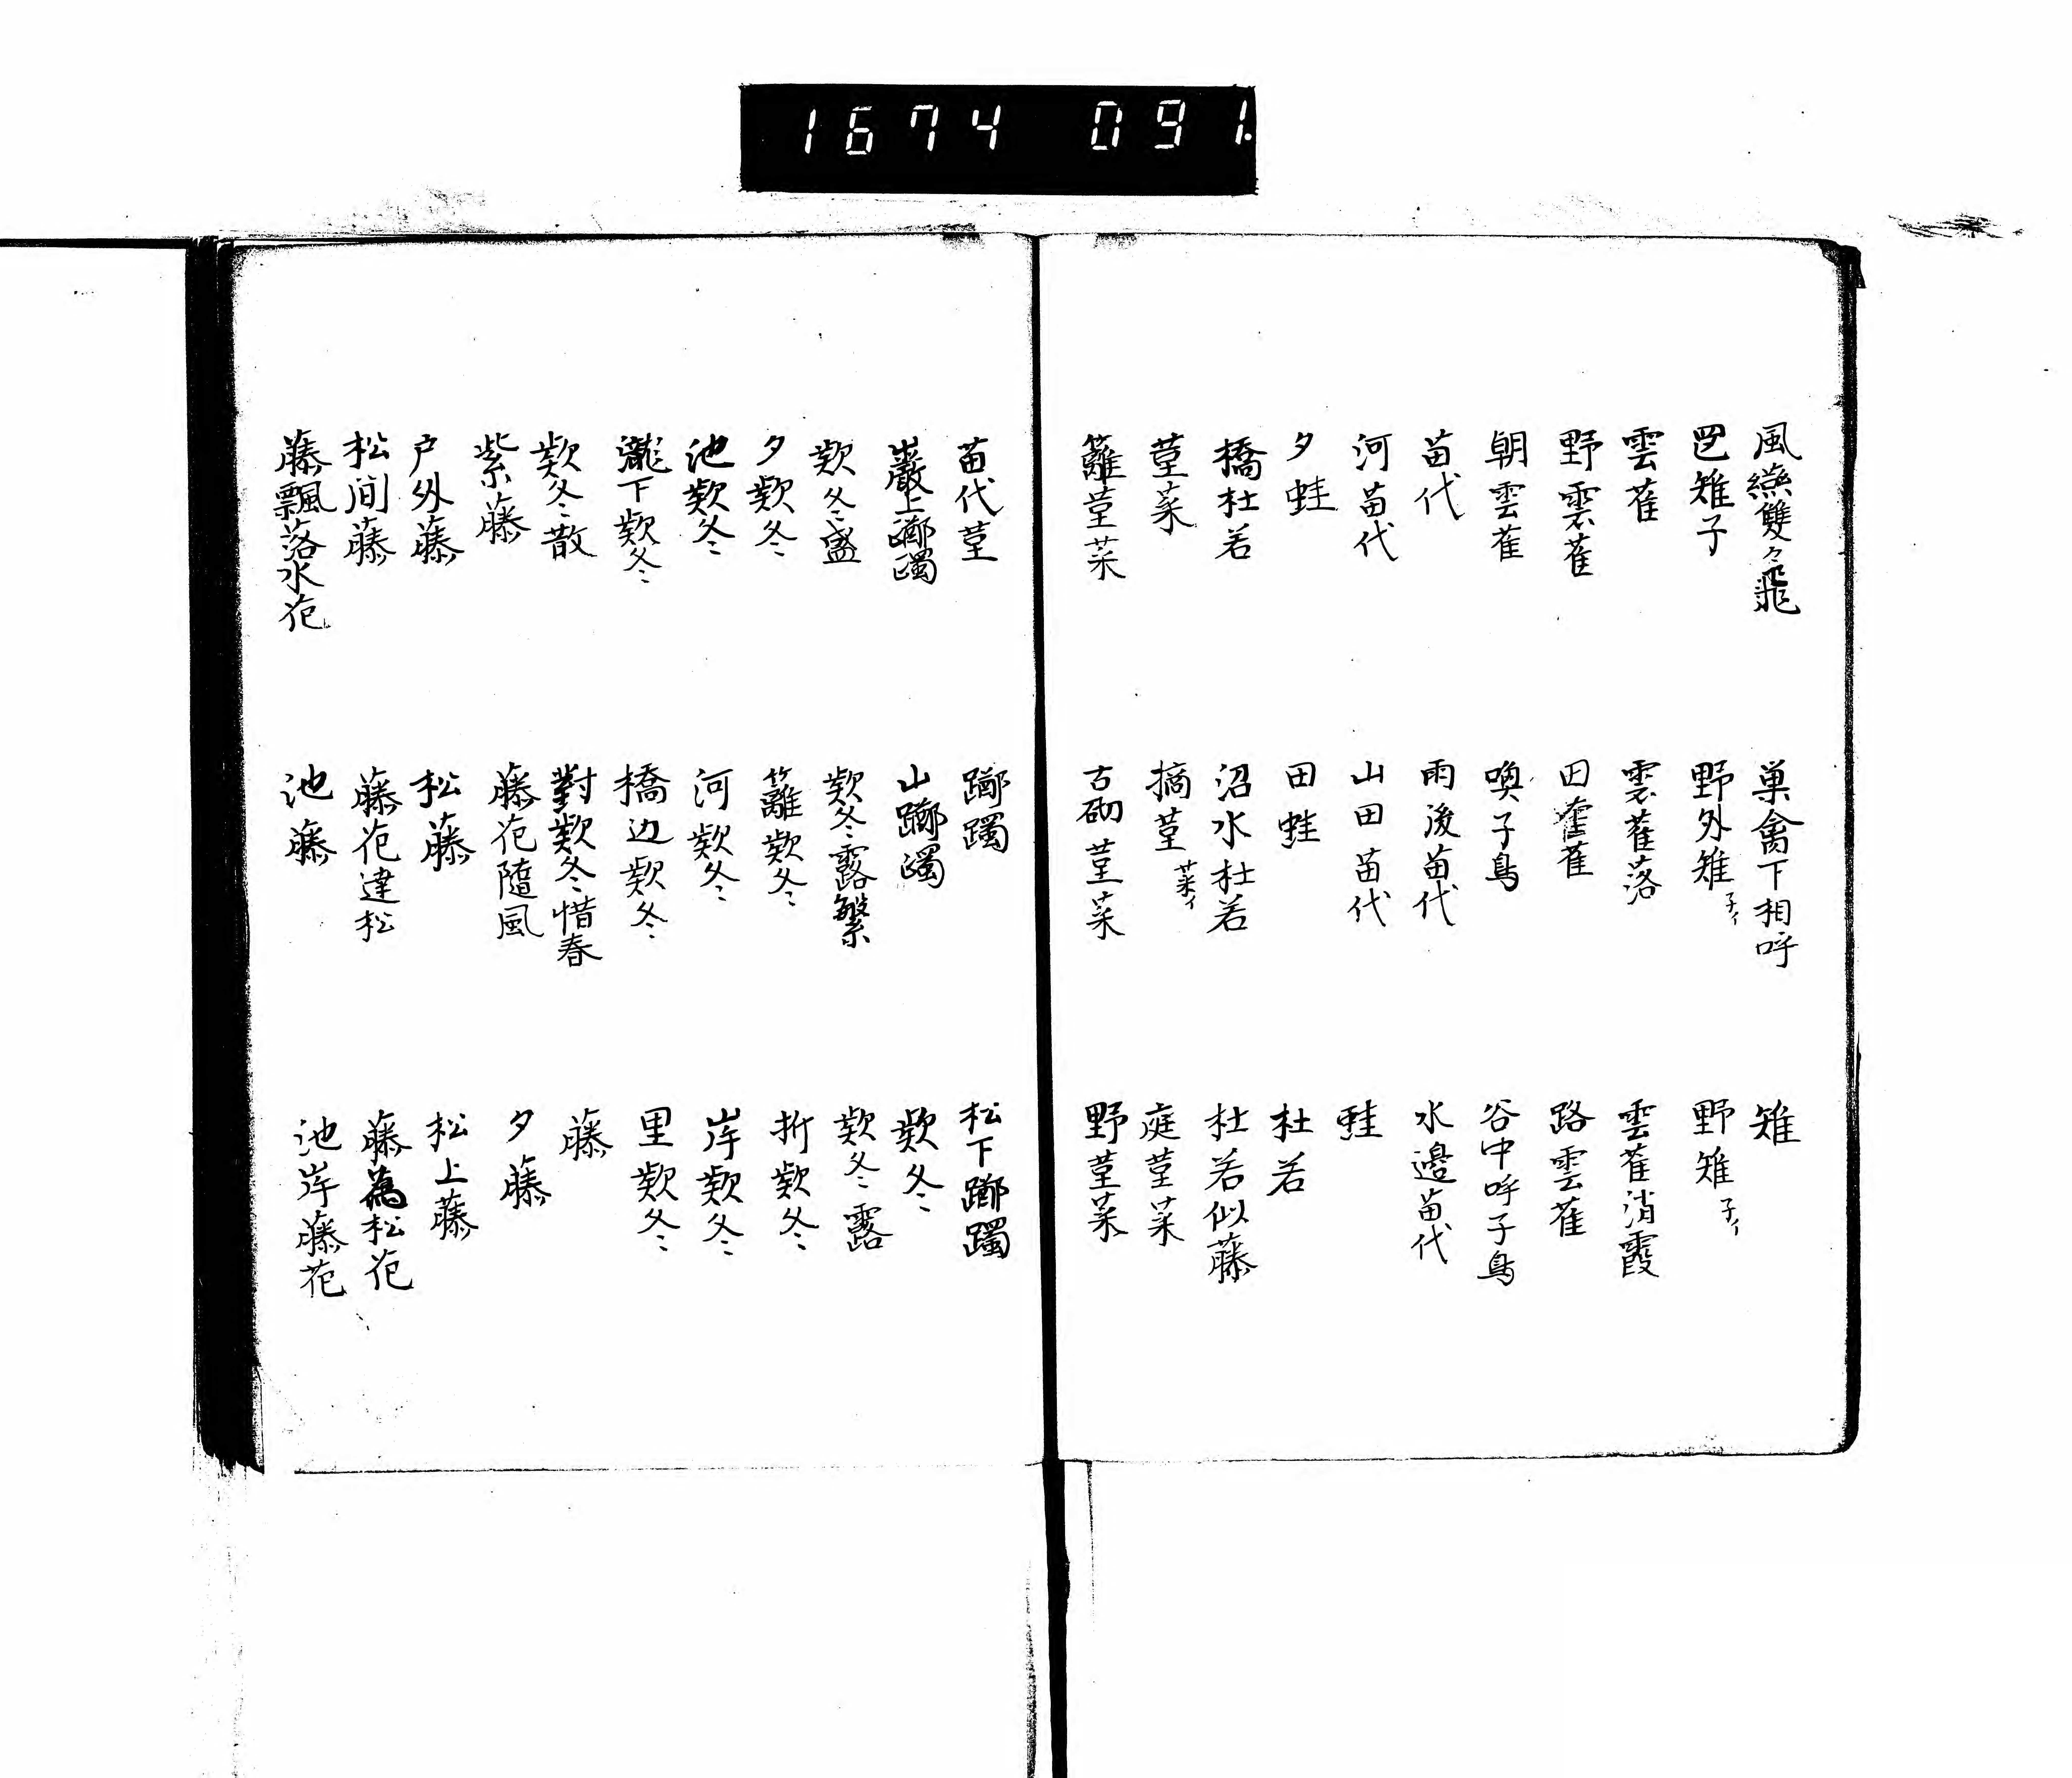 1674 091.
風燕雙々飛　巣禽下相呼　雉
雉子　野外雉子イ　野雉子イ
雲雀　雲雀落　雲雀消霞
野雲雀　田雀　路雲雀
朝雲雀　喚子鳥　谷中呼子鳥
苗代　雨後苗代　水邊苗代
河苗代　山田苗代　蛙
夕蛙　田蛙　杜若
橋杜若　沼水杜若　杜若似藤
菫菜　摘菫菜イ　庭菫菜
籬菫菜　古砌菫菜　野菫菜
苗代菫　躑躅　松下躑躅
巖上躑躅　山躑躅　款冬
款冬盛　款冬露繁　款冬露
夕款冬　籬款冬　折款冬
池款冬　河款冬　岸款冬
瀧下款冬　橋辺款冬　里款冬
款冬散　對款冬惜春　藤
紫藤　藤花隨風　夕藤
戸外藤　松藤　松上藤
松間藤　藤花達松　藤為松花
藤飄落水花　池藤　池岸藤花